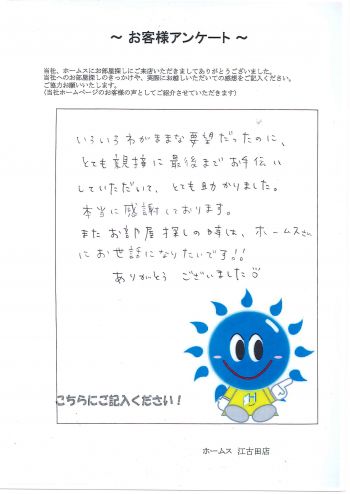 ～ お客様アンケート ～
当社、ホームスにお部屋探しにご来店いただきましてありがとうございました。
当社へのお部屋探しのきっかけや、実際にお越しいただいての感想をご記入ください。
ご協力お願いいたします。
(当社ホームページのお客様の声としてご紹介させていただきます)
いろいろわがままな要望だったのに、
とても親接に最後までお手伝い
していただいて、とても助かりました。
本当に感謝しております。
またお部屋探しの時は、ホームスさん
にお世話になりたいです!!
ありがとう ございました
こちらにご記入ください！
ホームス 江古田店